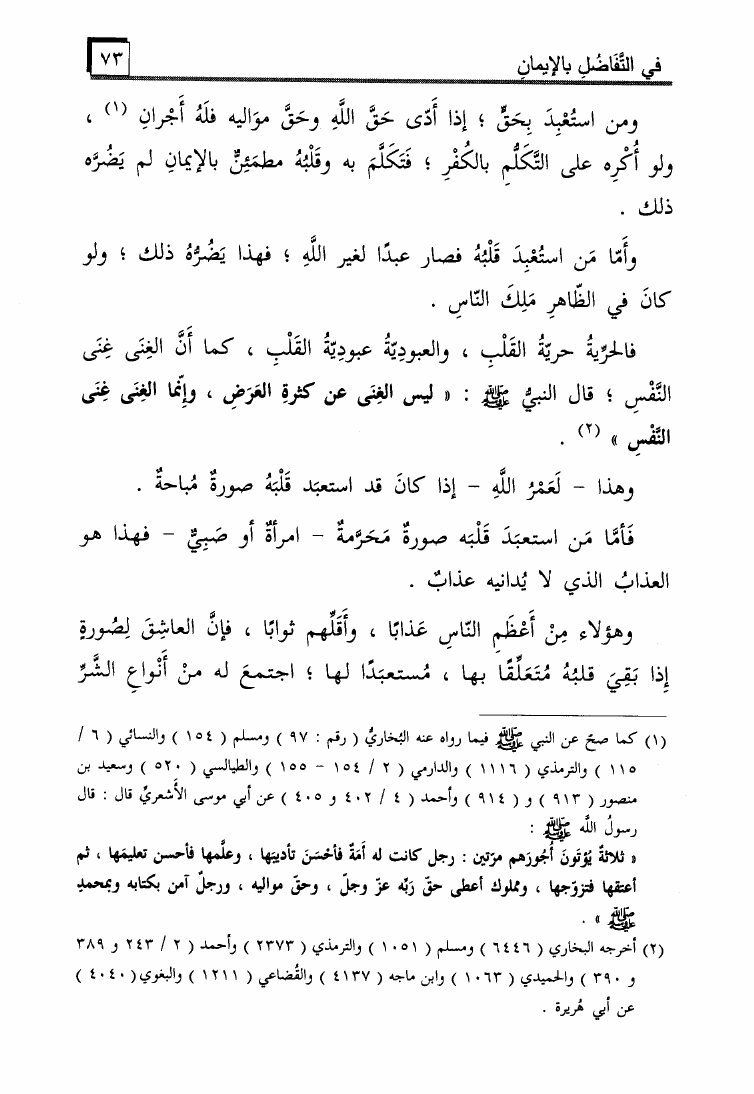 في التَّفَاضُلِ بالإيمانِ
٧٣
ومن استُعْبِدَ بِحَقٍّ ؛ إذا أَدّى حَقَّ اللَّهِ وحَقَّ مواليه فلَهُ أَجْرانِ (١) ،
ولو أُكْرِه على التَّكلُّمِ بالكُفْرِ ؛ فَتَكلَّمَ به وقَلْبُهُ مطمَئِنٌّ بالإيمانِ لم يَضُرَّه
ذلك .
وأَمّا مَن استُعْبِدَ قَلْبُهُ فصار عبدًا لغير اللَّهِ ؛ فهذا يَضُرُّهُ ذلك ؛ ولو
كانَ في الظّاهرِ مَلِكَ النّاسِ .
فالحرِّيةُ حريّةُ القَلْبِ ، والعبوديّةُ عبوديّةُ القَلْبِ ، كما أنَّ الغِنَى غِنَى
النَّفْسِ ؛ قال النبيُّ ﷺ : « ليس الغِنَى عن كثرةِ العَرَضِ ، وإنّما الغِنَى غِنَى
النَّفْسِ » (٢) .
وهذا – لَعَمْرُ اللَّهِ – إذا كانَ قد استعبَد قَلْبَهُ صورةٌ مُباحةٌ .
فَأمَّا مَن استعبَدَ قَلْبَه صورةٌ مَحَرَّمةٌ – امرأةٌ أو صَبِيٌّ – فهذا هو
العذابُ الذي لا يُدانيه عذابٌ .
وهؤلاء مِنْ أَعْظَمِ النّاسِ عَذابًا ، وأَقَلِّهم ثوابًا ، فإنَّ العاشِقَ لِصُورةٍ
إِذا بَقِيَ قلبُهُ مُتَعَلِّقًا بها ، مُستعبَدًا لها ؛ اجتمعَ له منْ أَنْواعِ الشَّرِّ
(١) كما صحّ عن النبي ﷺ فيما رواه عنه البُخاريُّ ( رقم : ٩٧ ) ومسلم ( ١٥٤ ) والنسائي ( ٦ /
١١٥ ) والترمذي ( ١١١٦ ) والدارمي ( ٢ / ١٥٤ – ١٥٥ ) والطيالسي ( ٥٢٠ ) وسعيد بن
منصور ( ٩١٣ ) و ( ٩١٤ ) وأحمد ( ٤ / ٤٠٢ و ٤٠٥ ) عن أبي موسى الأشعريِّ قال : قال
رسولُ اللَّه ﷺ :
« ثلاثةٌ يُؤتَونَ أُجُورَهم مرّتين : رجل كانت له أمَةٌ فأحْسَنَ تأديبَها ، وعلَّمها فأحسن تعليمَها ، ثم
أعتقها فتزوّجها ، ومملوك أعطى حقّ رَبِّه عزّ وجلّ ، وحقّ مواليه ، ورجلّ آمن بكتابه وبمحمدٍ
ﷺ » .
(٢) أخرجه البخاري ( ٦٤٤٦ ) ومسلم ( ١٠٥١ ) والترمذي ( ٢٣٧٣ ) وأحمد ( ٢ / ٢٤٣ و ٣٨٩
و ٣٩٠ ) والحميدي ( ١٠٦٣ ) وابن ماجه ( ٤١٣٧ ) والقُضاعي ( ١٢١١ ) والبغوي( ٤٠٤٠ )
عن أبي هُريرة .